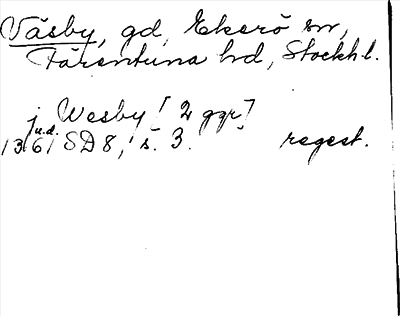 Väsby, gd, Ekerö sn,
Färentuna hd, Stockh.l.
j Wesby [2 ggr]
u.d.
1361 SD 8, s. 3. regest.